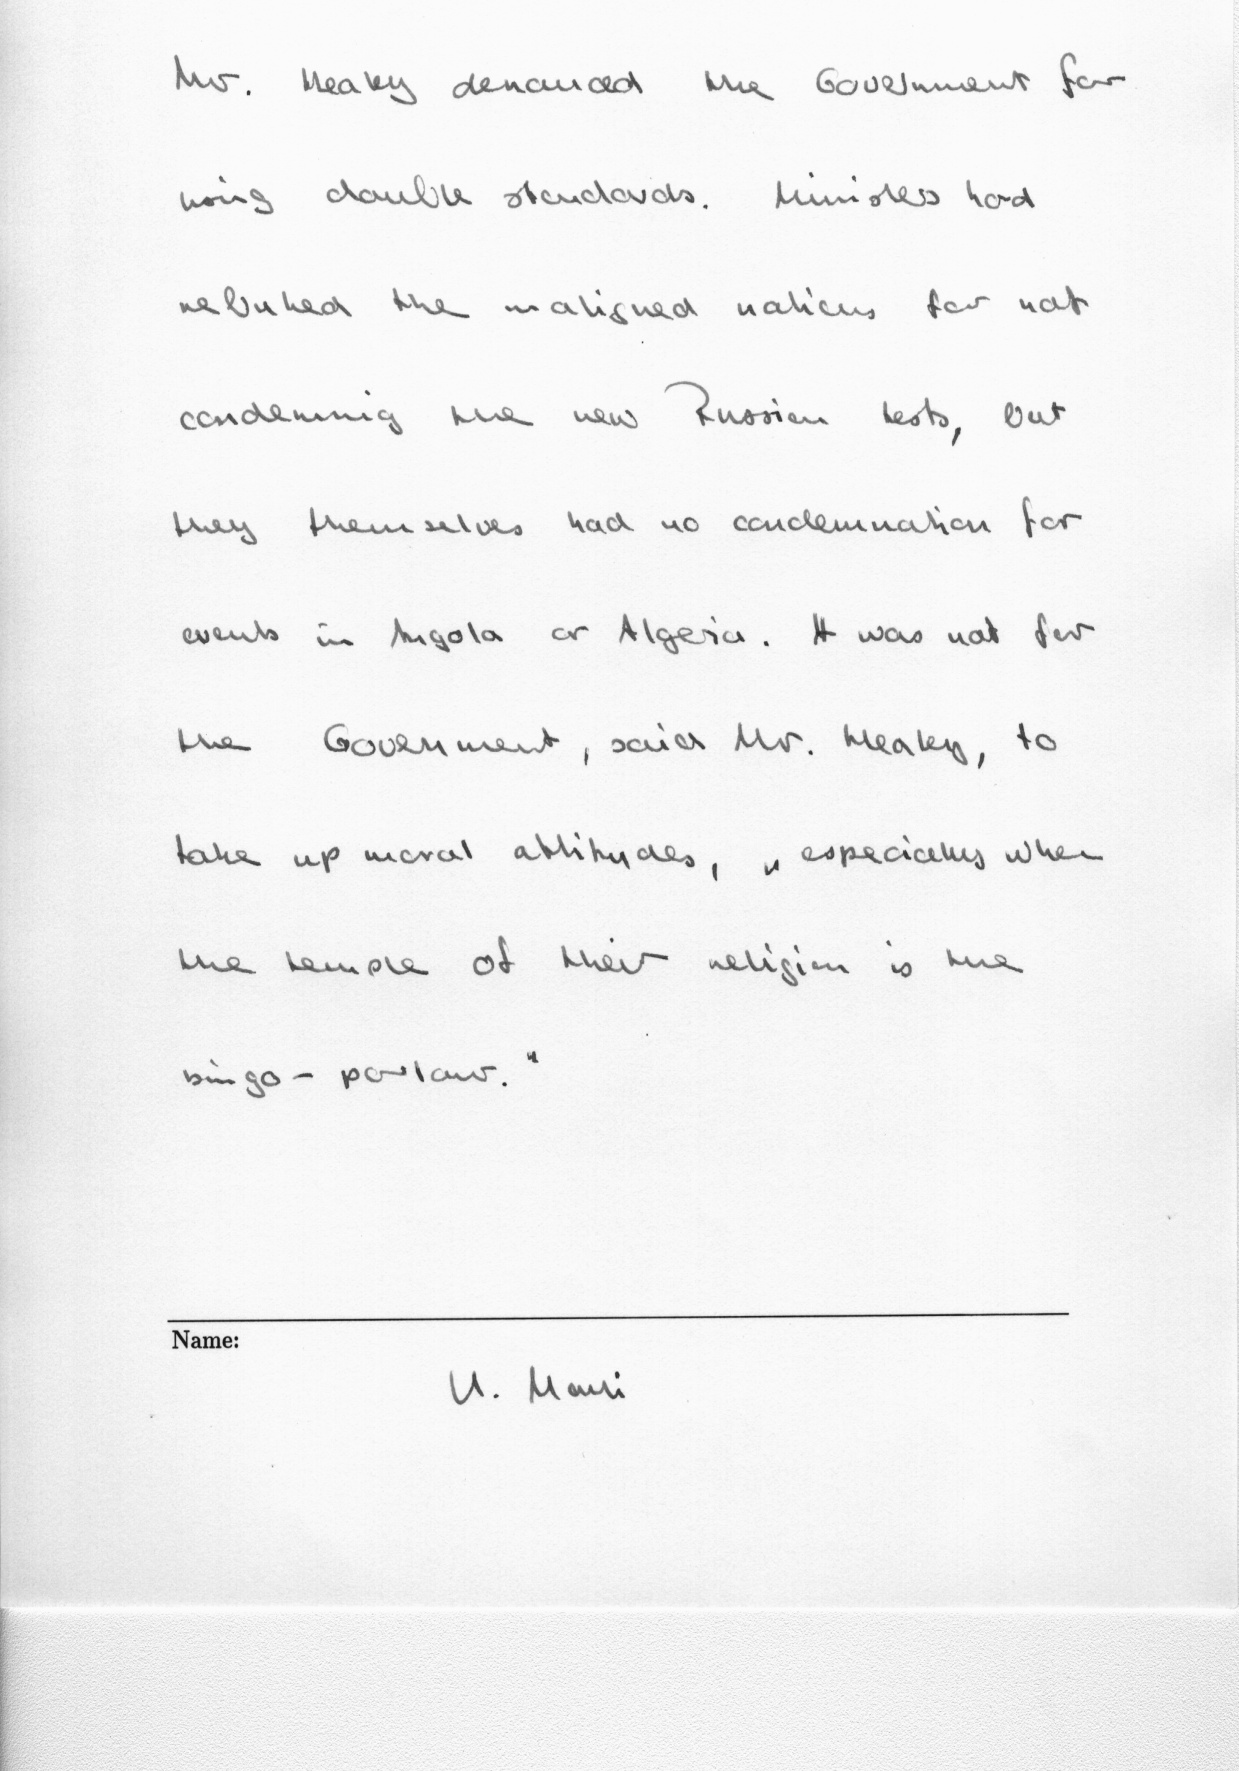 Mr. Healey denounced the Government for
using double standards. Ministers had
rebuked the maligned nations for not
condemning the new Russian tests, but
they themselves had no condemnation for
events in Angola or Algeria. It was not for
the Government, said Mr. Healey, to
take up moral attitudes, "especially when
the temple of their religion is the
bingo-parlour."
Name:
U.